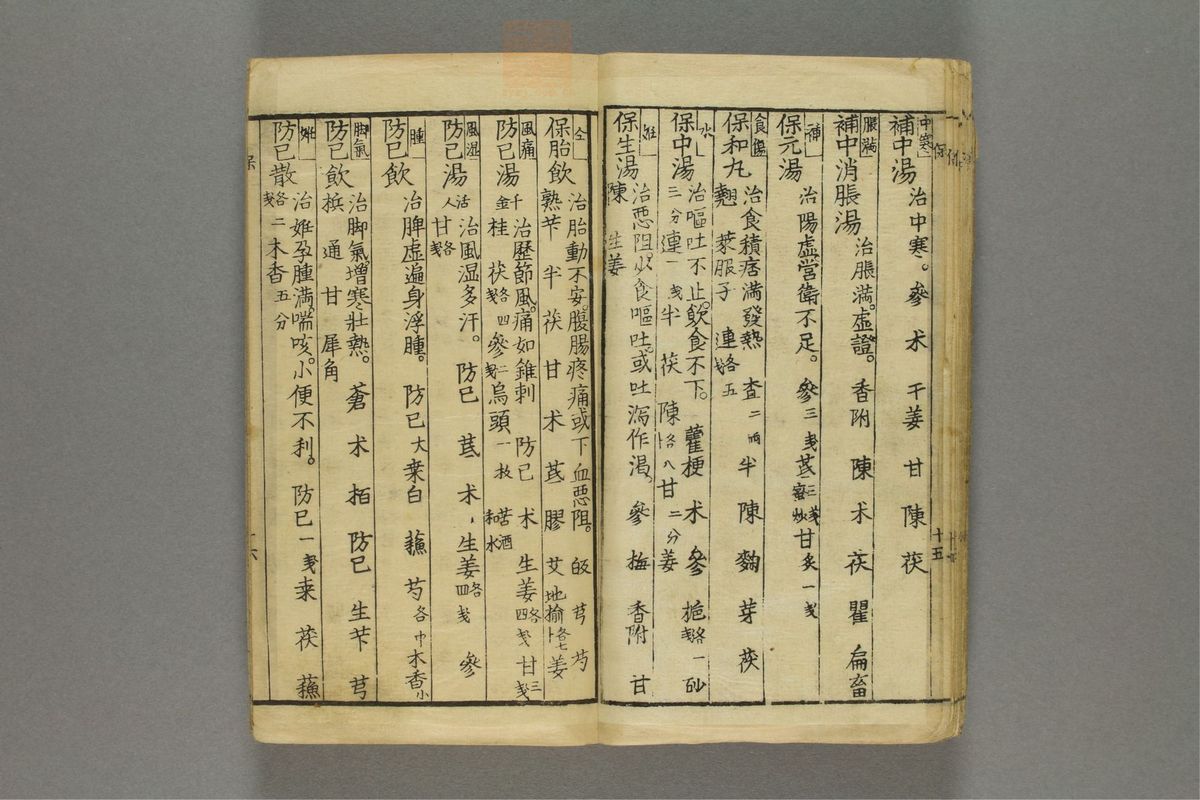 中寒
補中湯 治中寒。參 术 干姜 甘 陳 茯
脹滿
補中消脹湯 治脹滿。虛證。香附 陳 术 茯 瞿 扁畜
補
保元湯 治陽虛营衛不足。參三戔 芪二三戔 蜜炒 甘炙一戔
食傷
保和丸 治食積痞滿發熱 查二两 半 陳 麴 芽 茯
翹 萊服子 連各五戔
保中湯 治嘔吐不止。飲食不下。藿梗 术 參 梔各一戔 砂
三分 連一戔 半 茯 陳各八卜 甘二分 姜
姙
保生湯 治惡阻少食嘔吐。或吐瀉作渴。參 梅 香附 甘
陳 生姜
十五
仝
保胎飲 治胎動不安。腹腸疼痛或下血惡阻。皈 芎 芍
熟芐 半 茯 甘 术 芪 膠 艾 地揄各七卜 姜
風痛
防已湯 治歷節風。痛如錐刺 防已 术 生姜各四戔 甘三戔
千金 桂 茯各四戔 參二戔 烏頭一枚 苦酒和水
風湿
防已湯 治風湿多汗。防已 芪 术 生姜各四戔 參
活人 甘各戔
腫
防已飲 治脾虛遍身浮腫。防已大 桒白 蘓 芍各中 木香小
脚氣
防已飲 治脚氣增寒壮熱。蒼术 栢 防已 生芐 芎
梹 通 甘 犀角
姙
防已散 治姙孕腫滿喘咳。小便不利。防已一戔 桒 茯 蘓
各二戔 木香五分